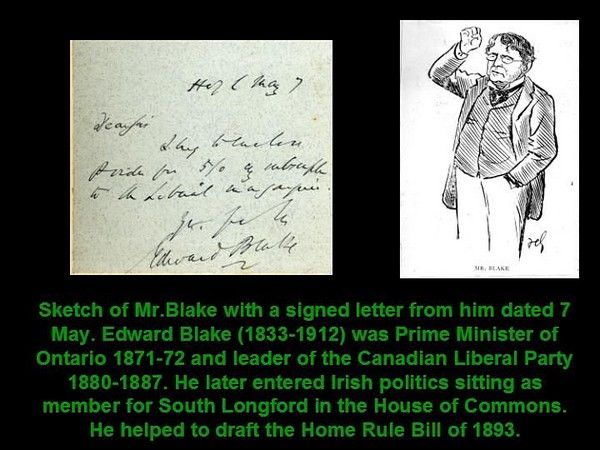 H of C May 7
Dear Sir
I beg to enclose
to the Liberal magazine.
Edward Blake
MR. BLAKE
Sketch of Mr.Blake with a signed letter from him dated 7
May. Edward Blake (1833-1912) was Prime Minister of
Ontario 1871-72 and leader of the Canadian Liberal Party
1880-1887. He later entered Irish politics sitting as
member for South Longford in the House of Commons.
He helped to draft the Home Rule Bill of 1893.